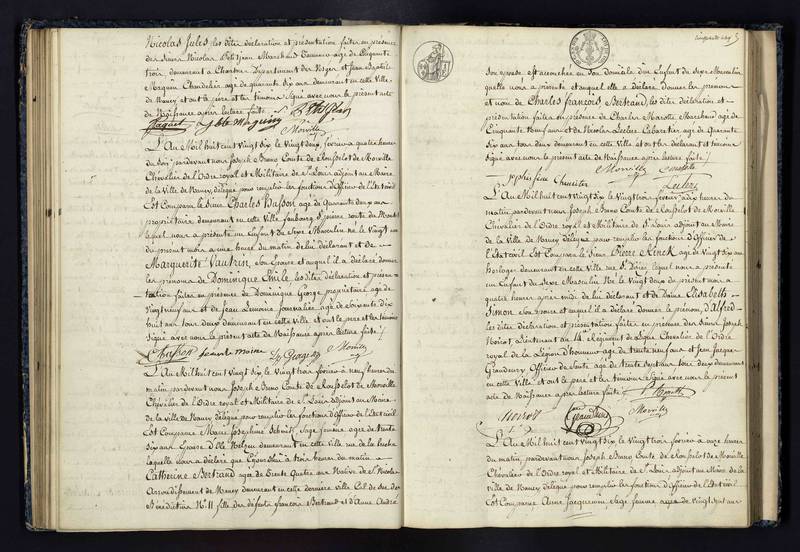 Nicolas Jules, les dites déclaration et présentation faites en présence
des Sieurs Nicolas Petitjean Marchand Tanneur agé de Cinquante
trois, demeurant a Charmes Département des Vosges et Jean Baptiste
Marquin Chandelier agé de quarante Six ans demeurant en cette Ville
de Nancy et ont le père et les témoins Signé avec nous le présent acte
de Naissance après lecture faite
Morville
L'An Mil huit cent Vingt Six le Vingt deux février a quatre heures
du Soir pardevant nous Joseph Bruno Comte de Rousselot de Morville
Chevalier de l'Ordre royal et Militaire de St Louis adjoint au Maire
de la Ville de Nancy délégué pour remplir les fonctions d'Officier de l'Etat civil
Est Comparu le Sieur Charles Basson, agé de Quarante deux ans
propriétaire demeurant en cette Ville faubourg St pierre
lequel nous a présenté un Enfant du Sexe Masculin né le Vingt un
du présent mois a une heure du matin de lui déclarant et de
Marguerite Vautrin, Son Epouse et auquel il a déclaré donner
les prénoms de Dominique Emile, les dites déclaration et présen-
tation faites en présence de Dominique George propriétaire agé de
Vingt neuf ans et de Jean Lemoine Journalier agé de Soixante dix
huit ans tous deux demeurant en cette Ville et ont le père et les témoins
Signé avec nous le présent acte de Naissance après lecture faite
Morville
L'An Mil huit cent Vingt Six le Vingt trois février a neuf heures du
matin pardevant nous Joseph Bruno Comte de Rousselot de Morville
Chevalier de l'Ordre royal et Militaire de St Louis adjoint au Maire
de la Ville de Nancy délégué pour remplir les fonctions d'Officier de l'Etat civil
Est Comparue Marie Josephine Schmitt, Sage femme agée de trente
Six ans Epouse demeurant en cette Ville rue de la
laquelle nous a déclaré que a trois heures du matin
Catherine Bertrand agée de Trente Quatre ans Native de St Nicolas
Arrondissement de Nancy demeurant en cette dernière Ville Cul de Sac des
Bénédictins No 11 fille des défunts françois Bertrand et d'Anne André
Son épouse est accouchée en Son domicile d'un Enfant du Sexe Masculin
quelle nous a présenté et auquel elle a déclaré donner les prénoms
et nom de Charles François, Bertrand, les dites déclaration et
présentation faites en présence de Charles Marchand agé de
Cinquante neuf ans et de Nicolas Leclerc Cabaretier agé de Quarante
Six ans tous deux demeurant en cette Ville et ont les déclarant et témoins
Signé avec nous le présent acte de Naissance après lecture faite
Morville
Leclerc
L'An Mil huit cent Vingt Six le Vingt trois fevrier a dix heures du
matin pardevant nous Joseph Bruno Comte de Rousselot de Morville
Chevalier de l'Ordre royal et Militaire de St Louis adjoint au Maire
de la Ville de Nancy délégué pour remplir les fonctions d'Officier de
l'Etat civil Est Comparu le Sieur Pierre Rinck agé de Vingt Six ans
horloger demeurant en cette Ville rue St Dizier lequel nous a présenté
un Enfant du Sexe Masculin Né le Vingt deux du présent mois a
quatre heures après midi de lui déclarant et de Dame Elisabeth
Simon Son Epouse et auquel il a déclaré donner le prénom, d'Alfred
les dites déclaration et présentation faites en présence des Sieurs Joseph
Noirot, Lieutenant au 14e Régiment de Ligne Chevalier de l'Ordre
royal de la Légion d'honneur agé de trente neuf ans et Jean Jacques
Grandeury Officier de Santé agé de trente Sept ans tous deux demeurant
en cette Ville et ont le père et les témoins Signé avec nous le présent
acte de Naissance après lecture faite
Noirot
Morville
L'An Mil huit cent Vingt Six le Vingt trois fevrier a onze heures
du matin, pardevant nous Joseph Bruno Comte de Rousselot de Morville
Chevalier de l'Ordre royal et Militaire de St Louis adjoint au Maire de la
Ville de Nancy délégué pour remplir les fonctions d'Officier de l'Etat civil
Est Comparue Anne Jacquemin, Sage femme agée de Vingt Sept ans